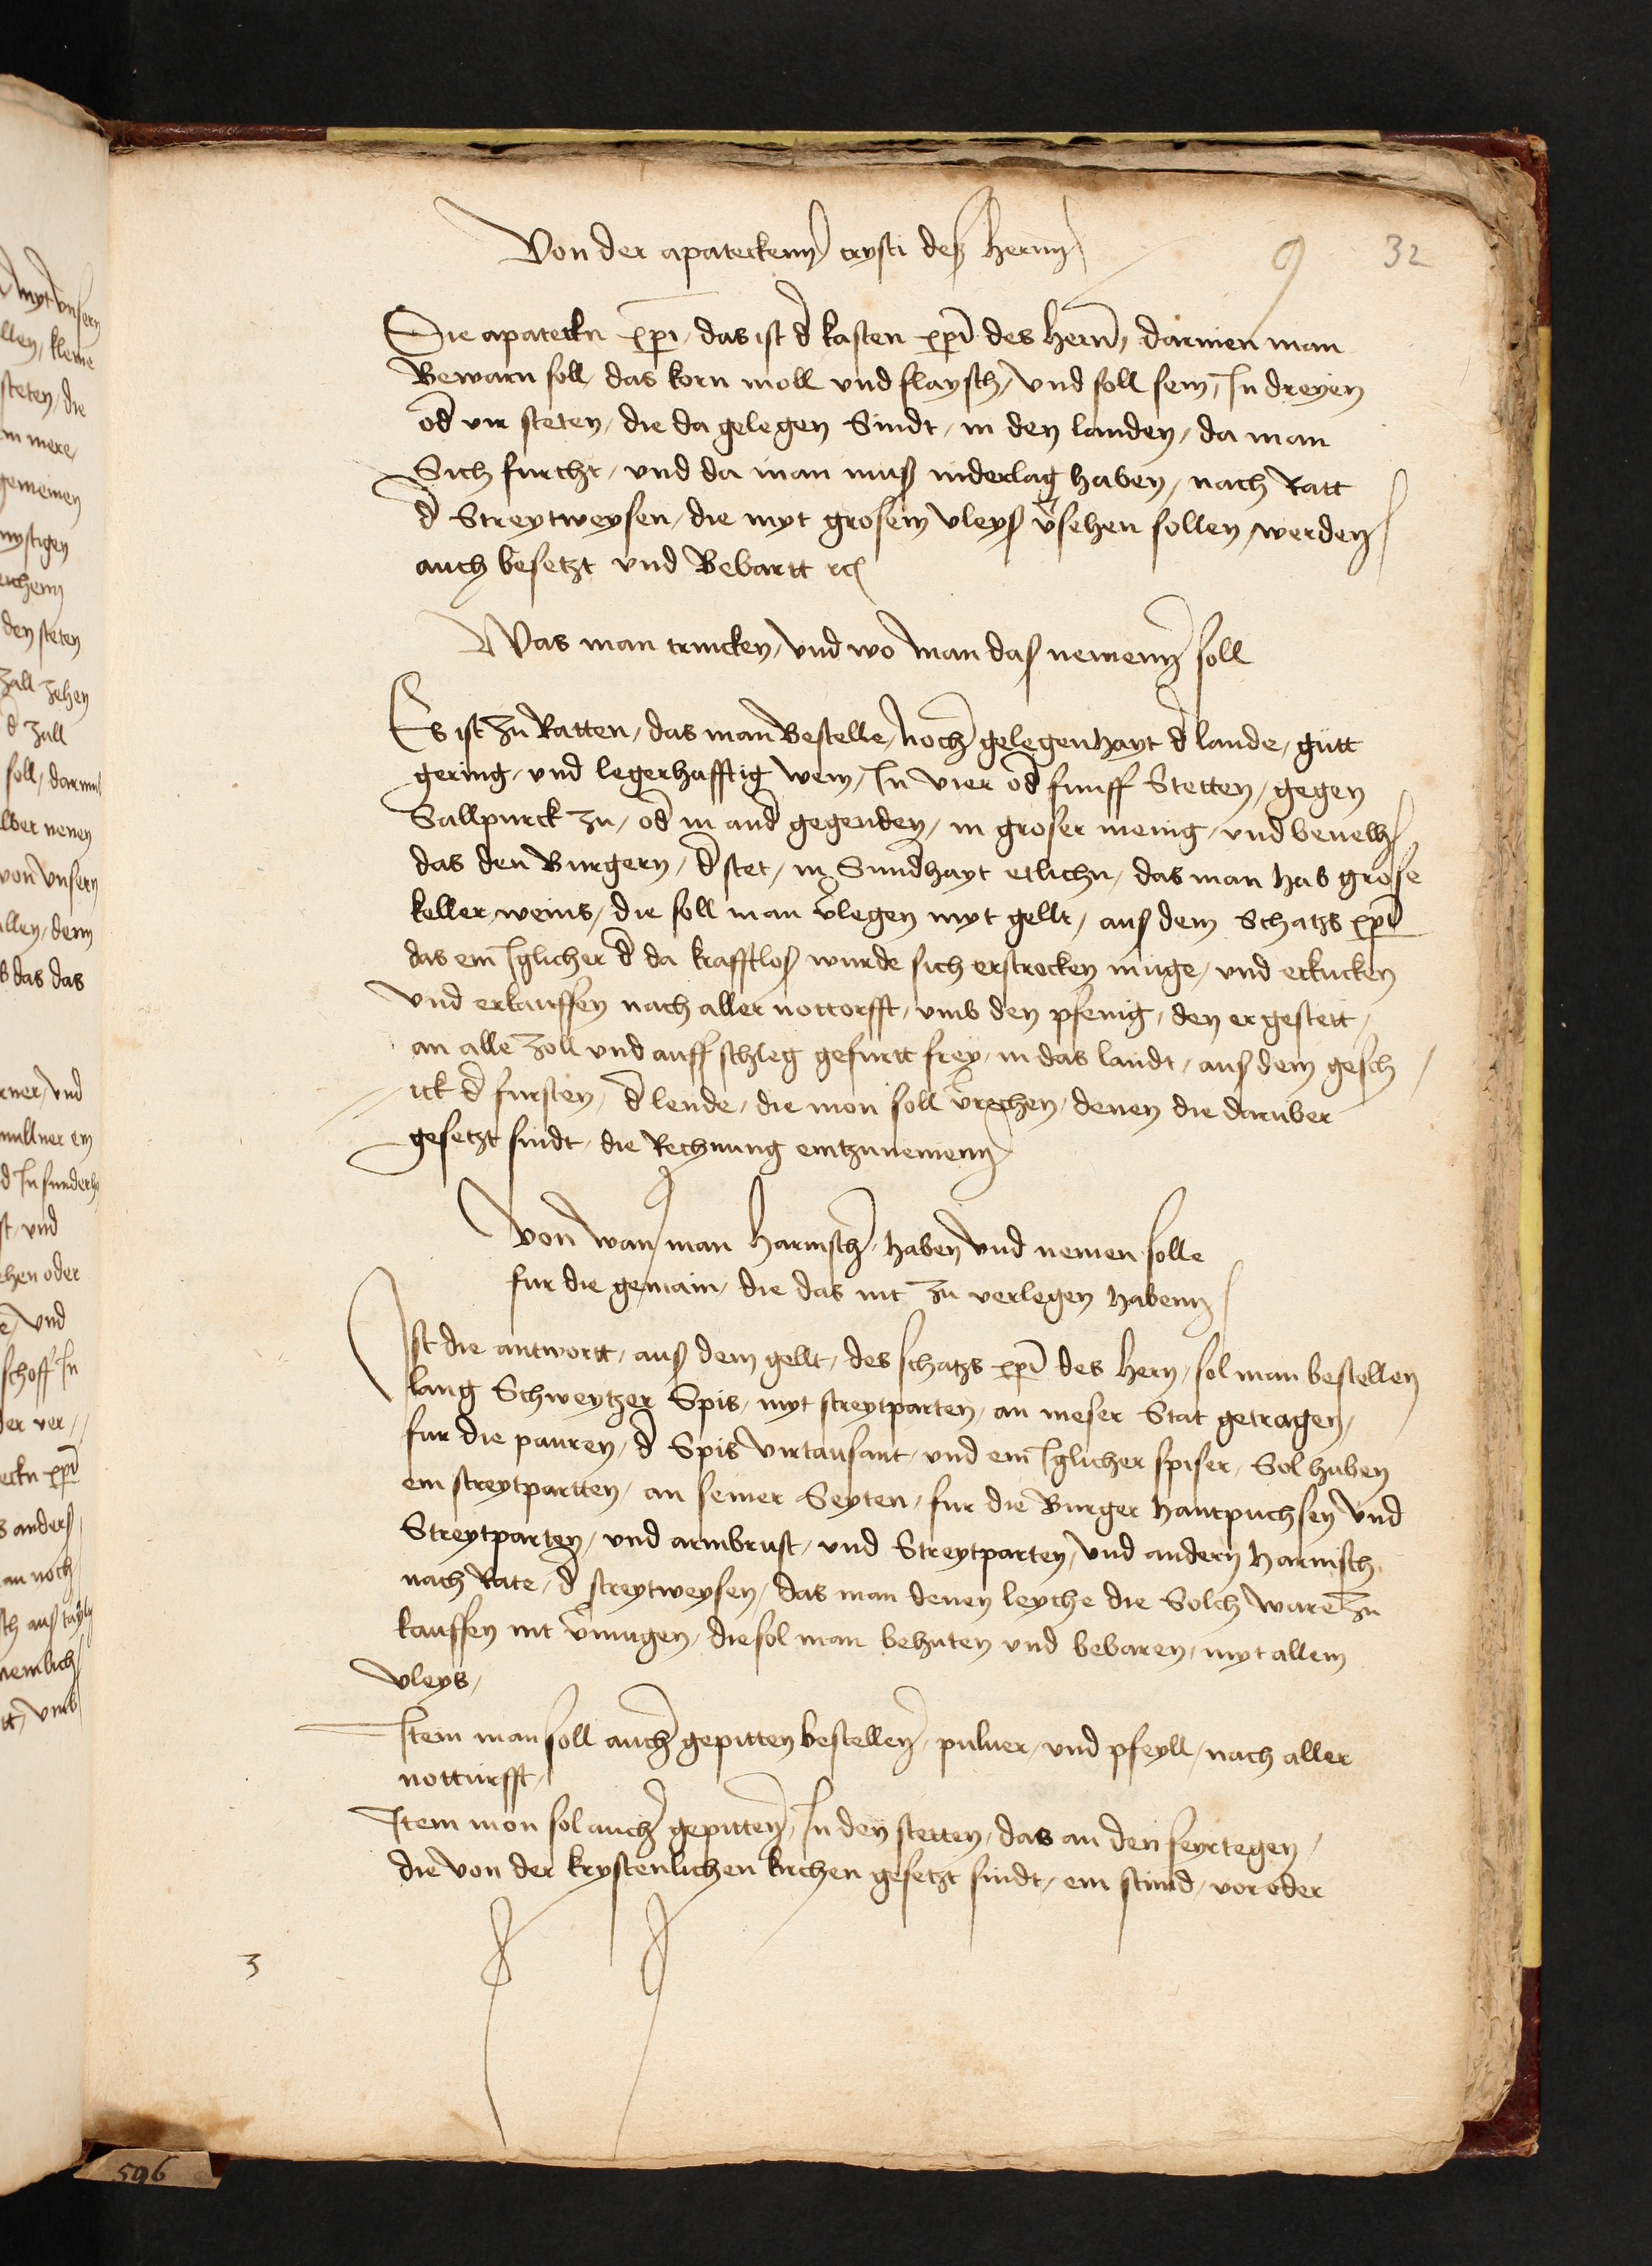 Von der apateckenn crysti deß hernn
9
32
Die apateckn xp̄i, das ist d̄ kasten xp̄i des hern̄, darinen man
Bewarn soll, das korn moll vnd flaysch, vnd soll sein, In dreyen
od̄ vir steten, die da gelegen Sindt, in den landen, da man
Sich furcht, vnd da man muß niderlag haben, nach Ratt
d̄ Streytweysen, die myt grosem vleyß v̄sehen sollen werden
auch besetzt vnd Bebartt rc
Was man trincken, vnd wo man daß nemenn soll
Es ist zu Ratten, das man Bestelle, noch gelegenhayt d̄ lande, gutt
gering, vnd legerhafftig wein, In vier od̄ funff Stetten, gegen
Sallpurck zu, od̄ in and̄ gegenden, in groser menig, vnd beuelh
das den Burgern, d̄ stet, in Sund̄hayt etlichn, das man hab grose
keller weins, die soll man v̄legen myt gellt, auß dem Schatzs xp̄i
das ein Iglicher d̄ da krafftloß wurde sich erstrecken muge, vnd erkucken
vnd erkauffen nach aller nottorfft, vmb den pfenig, den er gestett,
an alle zoll vnd auff schleg gefurtt frey, in das landt, auß dem gesch
ick d̄ fursten, d̄ lende, die mon soll v̄rechen, denen die daruber
gesetzt sindt, die Rechnung eintzunemenn
Von wan man harnisch, haben vnd nemen solle
fur die gemain, die das nit zu verlegen habenn
Ist die antwortt, auß dem gellt, des schatzs xp̄i des hern, sol man bestellen
lang Schweytzer Spis, myt streytparten, an meser Stat getragen,
fur die pauren, d̄ Spis virtausant, vnd ein Iglicher spiser, Sol haben
ein streytpartten, an seiner Seyten, fur die Burger hantpuchsen vnd
Streytparten, vnd armbrust, vnd Streytparten, vnd andern harnisch,
nach Rate, d̄ streytweysen, das man denen leyche die Solch ware zu
kauffen nit v̄mugen, die sol man behuten vnd bebaren, myt allem
vleys,
Item man soll auch gepitten bestellen, puluer, vnd pfeyll, nach aller
notturfft,
Item mon sol auch gepitten, In den stetten, das an den feyrtegen,
die von der krystenlichen kirchen gesetzt sindt, ein stund, vor oder
3
596